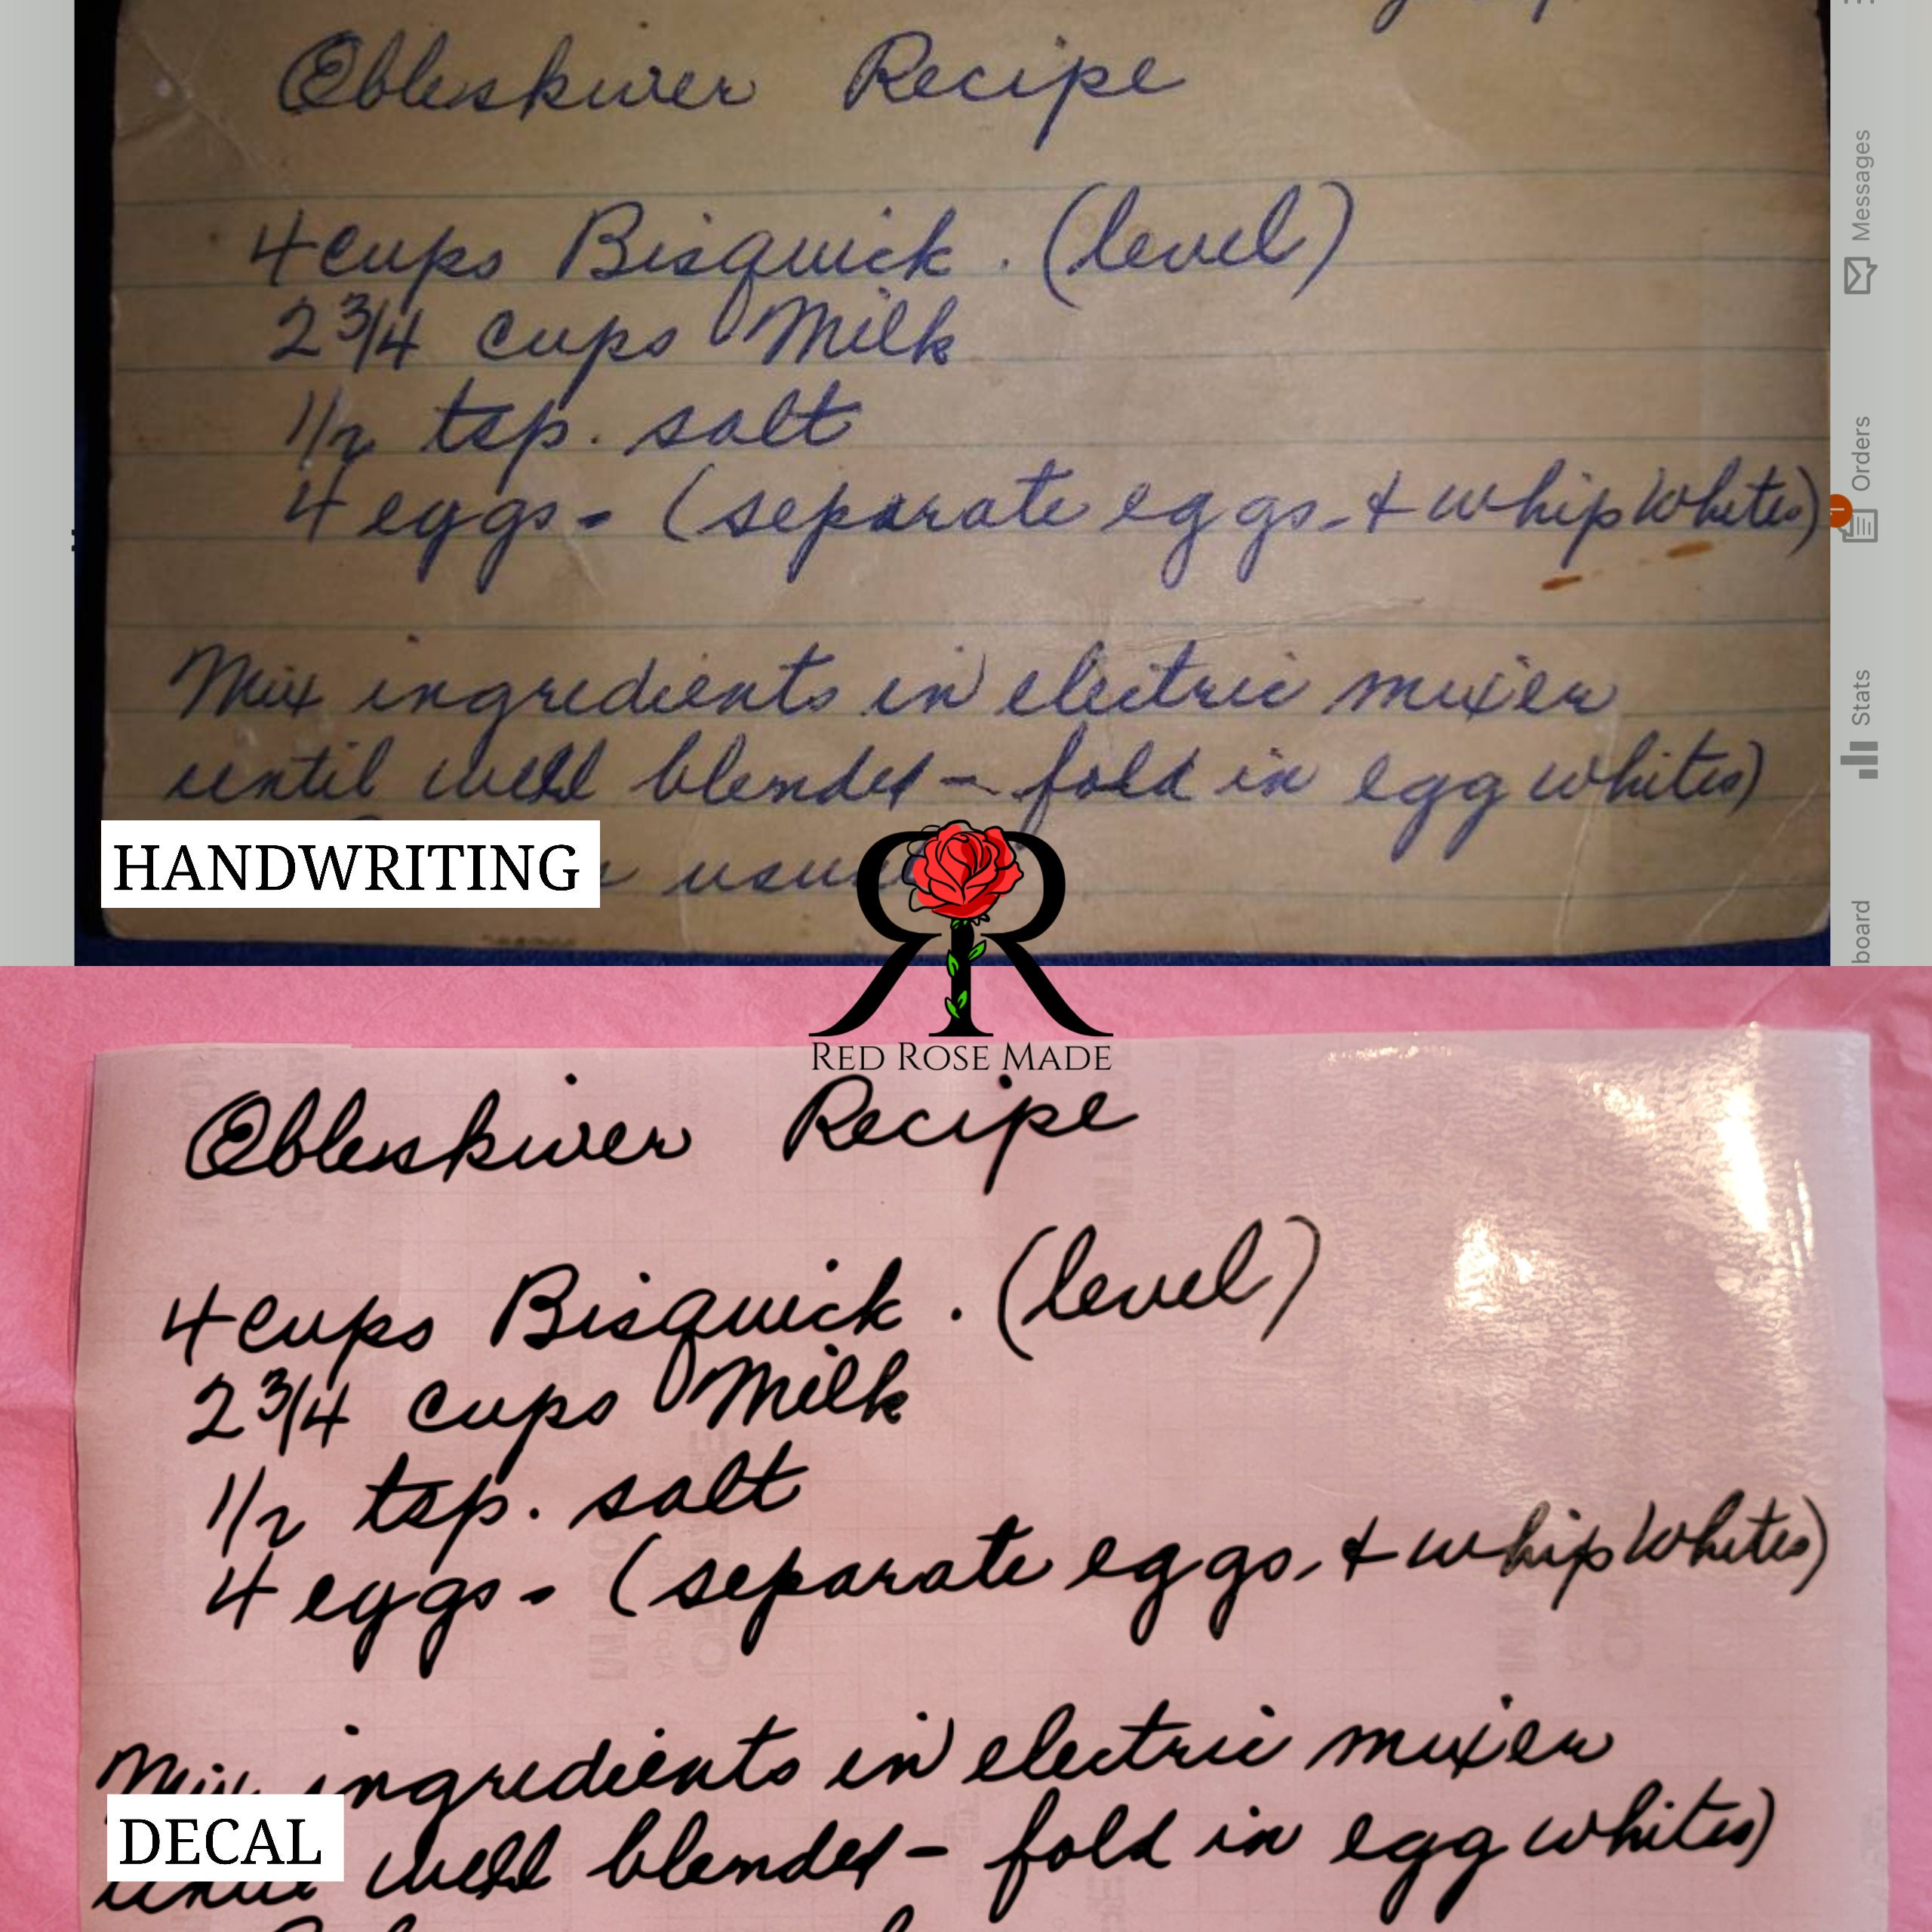 Ebleskiver Recipe
4 cups Bisquick . (level)
2 3/4 cups Milk
1/2 tsp. salt
4 eggs - (separate eggs - & whip whites)
Mix ingredients in electric mixer
until well blended - fold in egg whites)
HANDWRITING
Messages
Orders
Stats
board
RED ROSE MADE
Ebleskiver Recipe
4 cups Bisquick . (level)
2 3/4 cups Milk
1/2 tsp. salt
4 eggs - (separate eggs - & whip whites)
Mix ingredients in electric mixer
until well blended - fold in egg whites)
DECAL